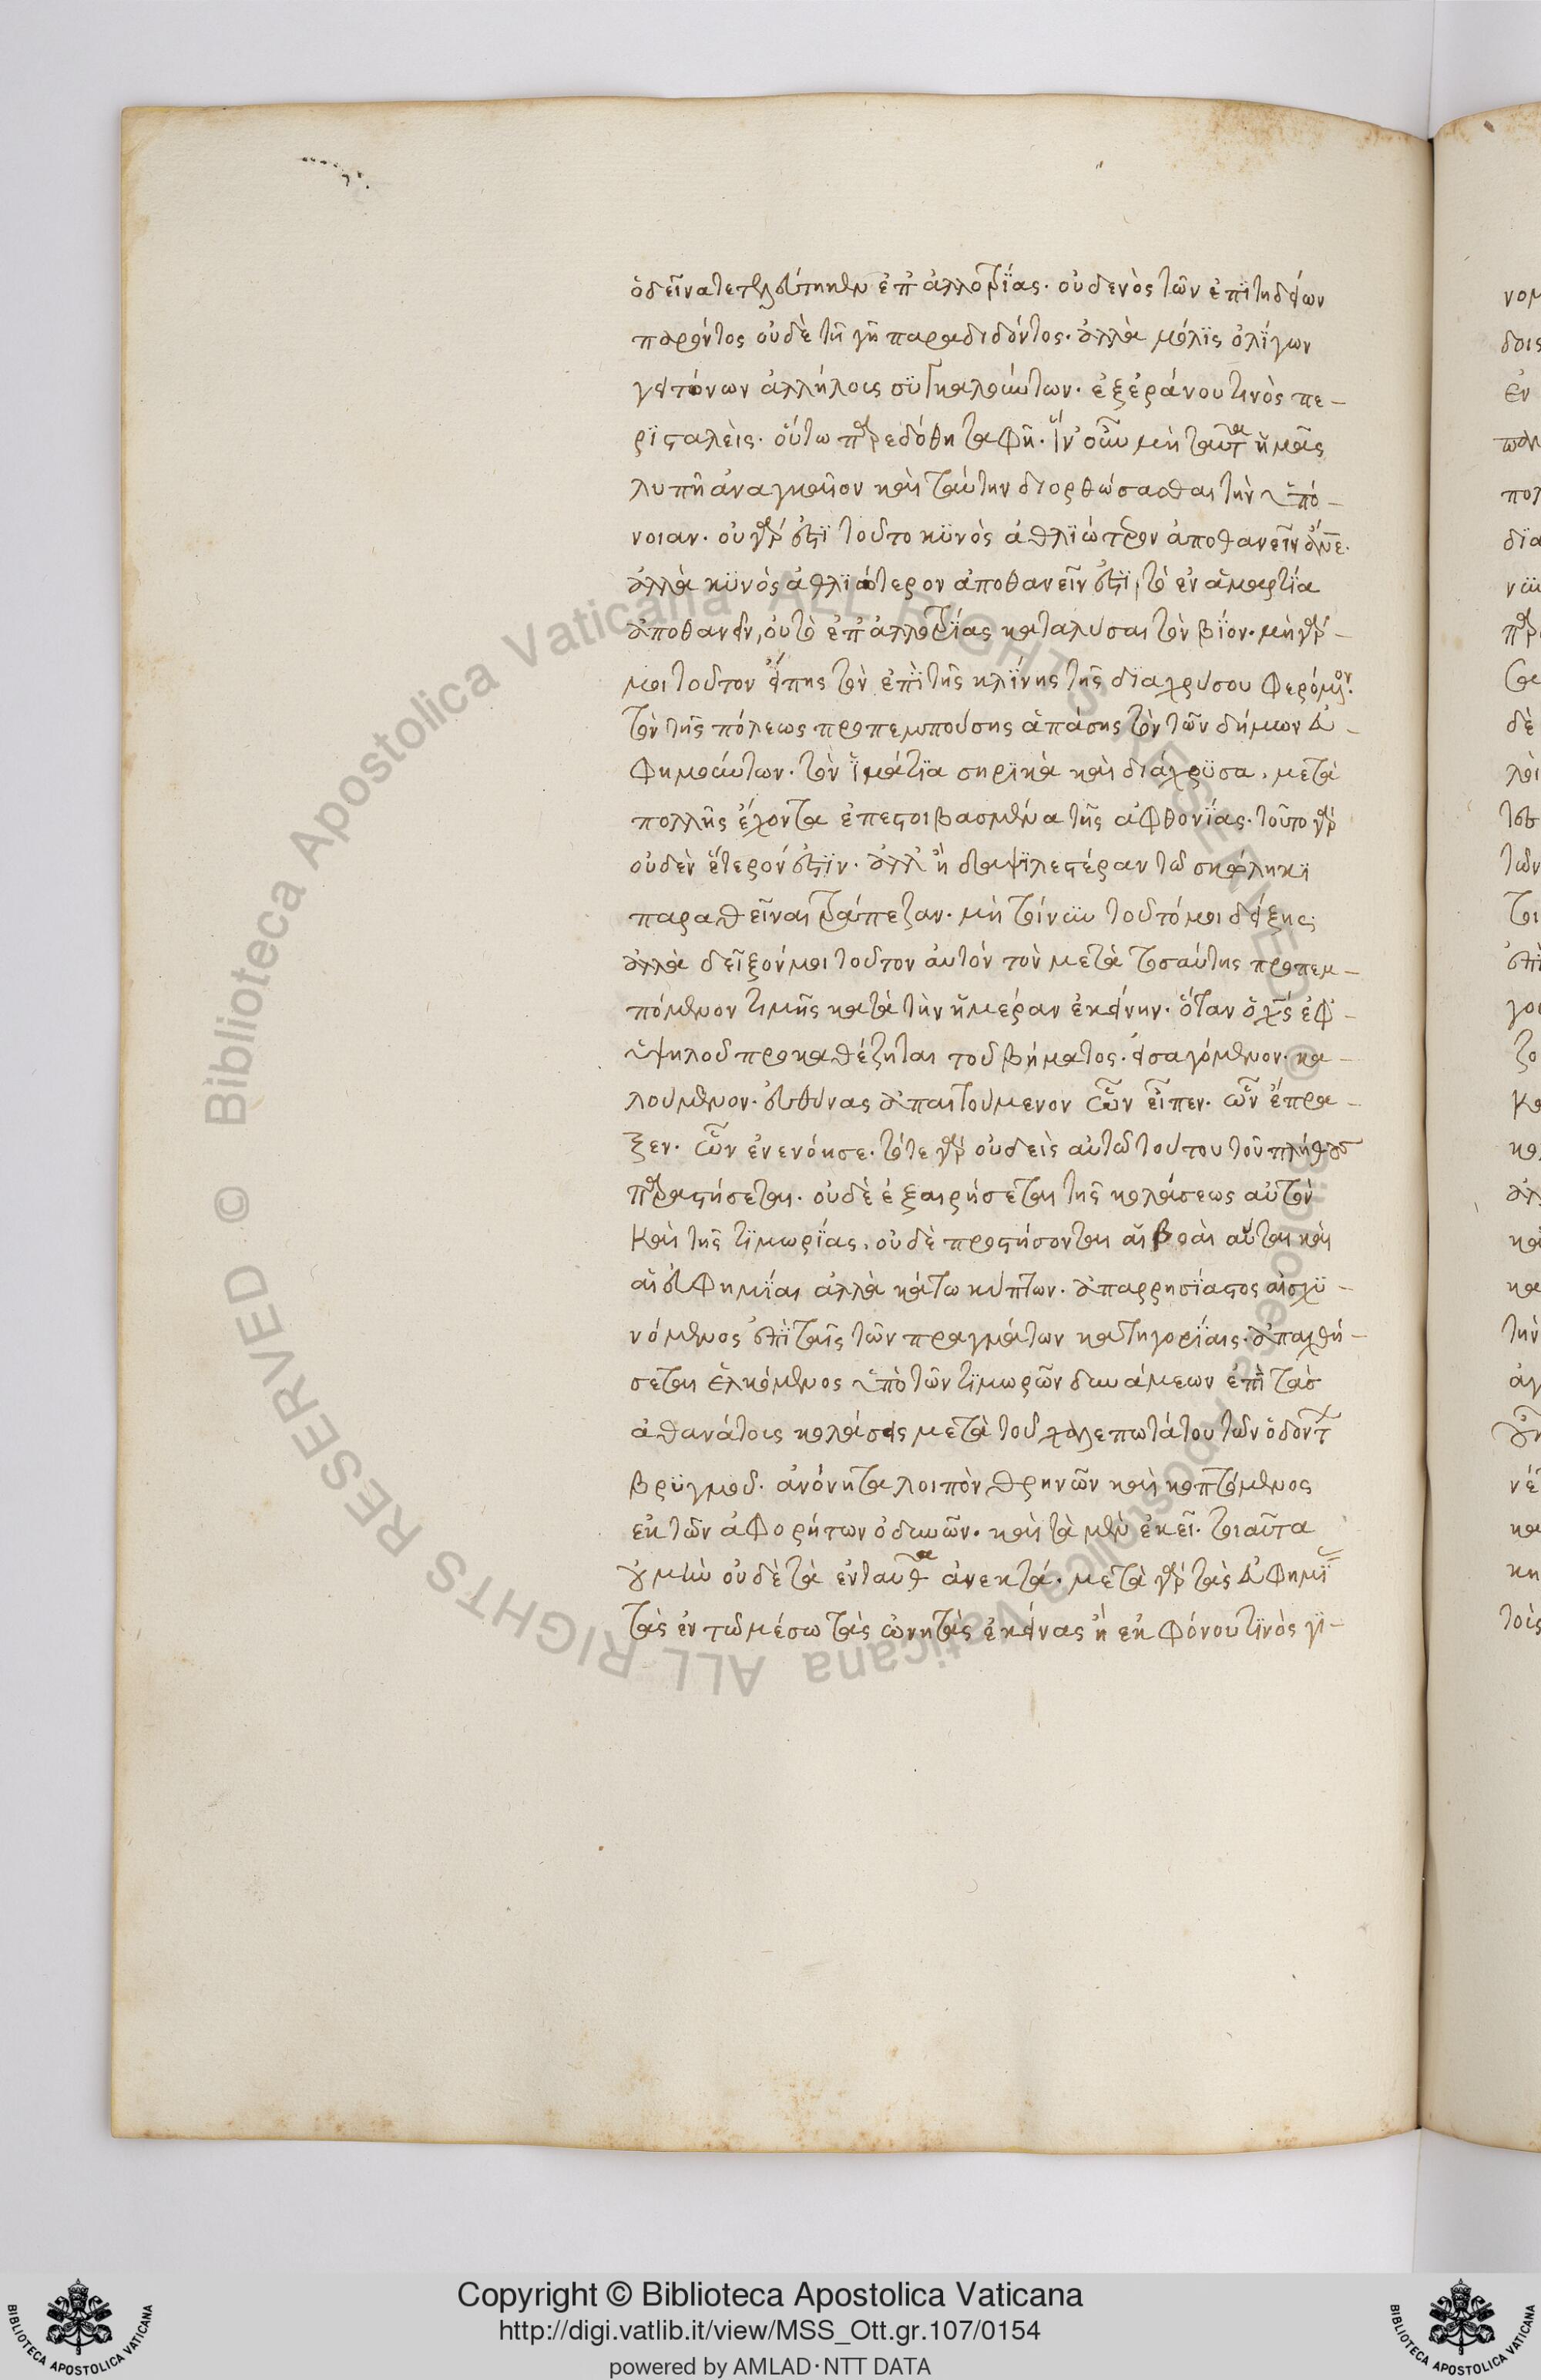 ὁ δεῖνα τετελεύτηκεν ἐπ ἀλλοτρίας. οὐδενὸς τῶν ἐπιτηδείων
παρόντος οὐδὲ τῆ γῆ παραδιδόντος. ἀλλὰ μόλις ὀλίγων
γειτόνων ἀλλήλοις συγκαλεσάντων. ἐξ ἐράνου τινὸς πε-
ρισταλεὶς. οὕτω παρεδόθη ταφῆ. ἵν' οὖν μὴ ταῦτα ἡμᾶς
λυπῆ ἀναγκαῖον καὶ ταύτην διορθώσασθαι τὴν ὑπό-
νοιαν. οὐ γάρ ἐστι τοῦτο κυνὸς ἀθλιώτερον ἀποθανεῖν
ἀλλὰ κυνὸς ἀθλιώτερον ἀποθανεῖν ἐστὶ, τὸ ἐν ἁμαρτία
ἀποθανεῖν, οὐ τὸ ἐπ ἀλλοτρίας καταλύσαι τὸν βίον. μὴ γάρ-
μοι τοῦτον εἴπης τὸν ἐπὶ τῆς κλίνης τῆς διαχρύσου φερόμενον.
τὸν τῆς πόλεως προπεμπούσης ἁπάσης τὸν τῶν δήμων εὐ-
φημούντων. τὸν ἱμάτια σηρικὰ καὶ διάχρυσα. μετὰ
πολλῆς ἔχοντα ἐπεστοιβασμένα τῆς ἀφθονίας. τοῦτο γάρ
οὐδὲν ἕτερόν ἐστιν. ἀλλ' ἢ δαψιλεστέραν τῶ σκώληκι
παραθεῖναι τράπεζαν. μὴ τοίνυν τοῦτό μοι δείξης
ἀλλὰ δεῖξόν μοι τοῦτον αὐτόν τὸν μετὰ τοσαύτης προπεμ-
πόμενον τιμῆς κατὰ τὴν ἡμέραν ἐκείνην. ὅταν ὁ χς ἐφ-
ὑψηλοῦ προκαθέζηται τοῦ βήματος. εἰσαγόμενον. κα-
λούμενον. εὐθύνας ἀπαιτούμενον ὧν εἶπεν. ὧν ἔπρα-
ξεν. ὧν ἐνενόησε. τότε γάρ οὐδεὶς αὐτῶ τούτου τοῦ πλήθους
παραστήσεται. οὐδὲ ἐξαιρήσεται τῆς κολάσεως αὐτὸν
Καὶ τῆς τιμωρίας. οὐδὲ προστήσονται αἱ βοαὶ αὗται καὶ
αἱ εὐφημίαι ἀλλὰ κάτω κύπτων. ἀπαρρησίαστος αἰσχυ-
νόμενος ἐπὶ ταῖς τῶν πραγμάτων κατηγορίαις. ἀπαχθή-
σεται ἑλκόμενος ὑπὸ τῶν τιμωρῶν δυνάμεων ἐπὶ τὰς
ἀθανάτοις κολάσεις μετὰ τοῦ χαλεπωτάτου τῶν ὀδόντων
βρυγμοῦ. ἀνόνητα λοιπὸν θρηνῶν καὶ κοπτόμενος
ἐκ τῶν ἀφορήτων ὀδυνῶν. καὶ τὰ μὲν ἐκεῖ. τοιαῦτα
οὐ μὴν οὐδὲ τὰ ἐνταῦθα ἀνεκτά. μετὰ γάρ τὰς εὐφημίας
τὰς ἐν τῶ μέσω τὰς ὠνητὰς ἐκείνας ἢ ἐκ φόνου τινὸς γι-
Copyright © Biblioteca Apostolica Vaticana
http://digi.vatlib.it/view/MSS_Ott.gr.107/0154
powered by AMLAD·NTT DATA